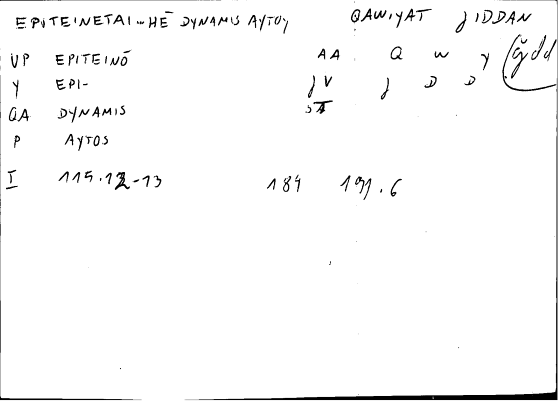 EPITEINETAI...HĒ DYNAMIS AYTOY QAWIYAT JIDDAN
VP EPITEINŌ AA Q W Y ǧdd
Y EPI- JV J D D
QA DYNAMIS
P AYTOS
I 115.12-13 184 191.6